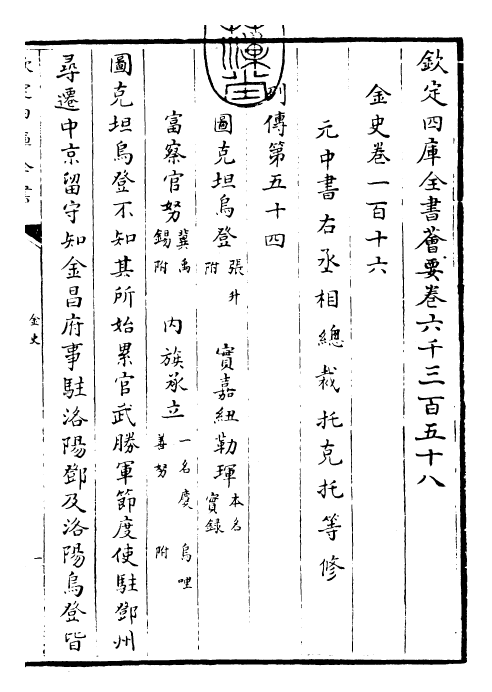 欽定四庫全書薈要卷六千三百五十八
金史卷一百十六
元中書右丞相總裁托克托等修
列傳第五十四
圖克坦烏登 張升附 實嘉紐勒琿 本名實錄
富察官努 冀禹錫附 內族承立 一名慶善努 烏哩附
圖克坦烏登不知其所始累官武勝軍節度使駐鄧州
尋遷中京留守知金昌府事駐洛陽鄧及洛陽烏登皆
金史
一